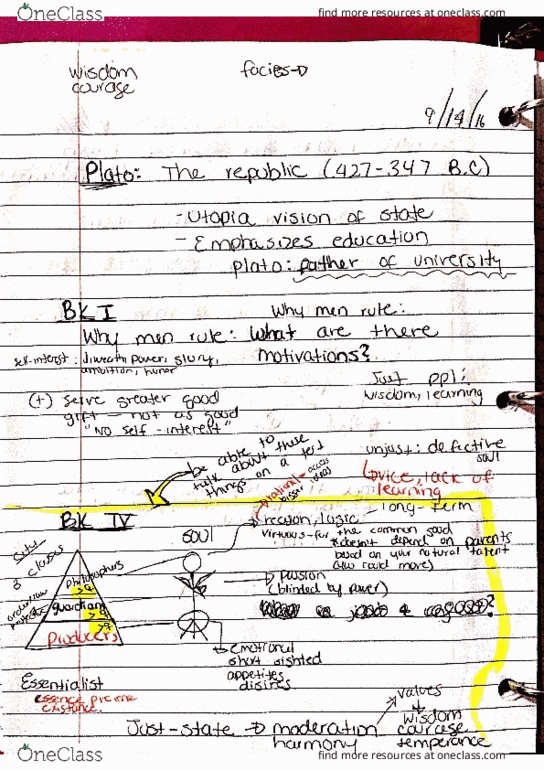 OneClass
find more resources at oneclass.com
wisdom
courage
facies→
9/14/16
Plato: The republic (427-347 B.C)
- Utopia vision of state
- Emphasizes education
Plato: father of university
BK I
Why men rule:
Why men rule: what are there
motivations?
self-interest: wealth, power, glory,
ambition, honor
Just ppl:
wisdom, learning
(+) serve greater good
gift - not as good
"NO self-interest"
unjust: defective
soul
vice, lack of
learning
be able to
talk about these
things on a test
access
ideas
long-term
BK IV
soul
reason, logic
virtuous - for the common good
*doesn't depend on parents
based on your natural talent
City
3 classes
philosophers
guardian
Producers
passion
(blinded by power)
emotional
short sighted
appetites
disires
Essentialist
essence
existance.
values
Just-state → moderation
harmony
wisdom
courage
temperance
OneClass
find more resources at oneclass.com